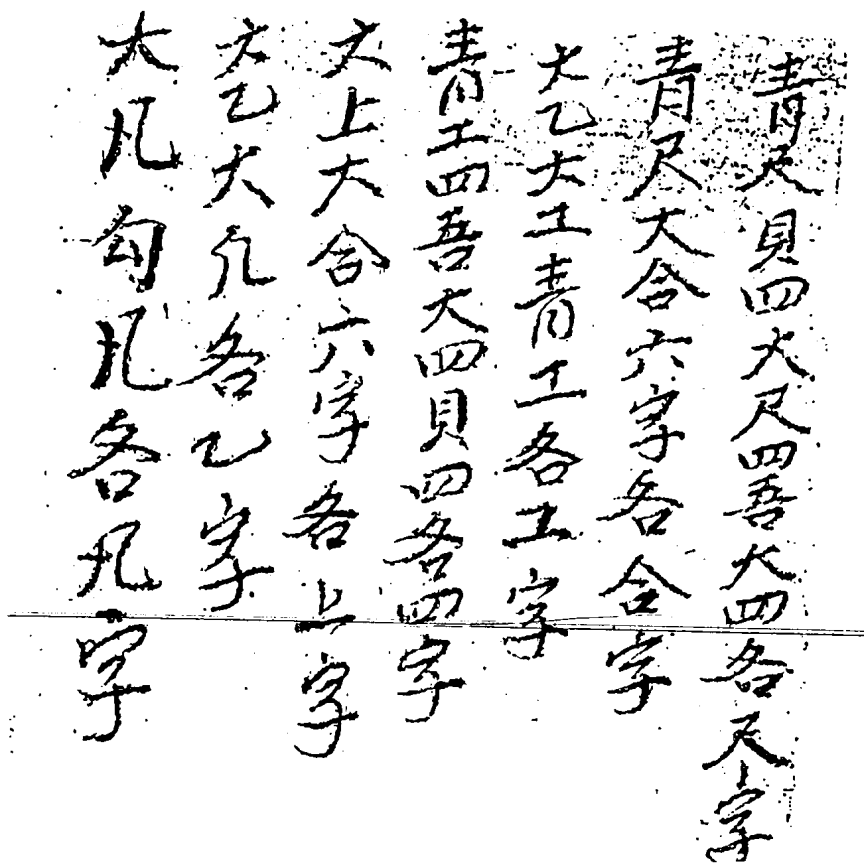 青尺貝四大尺四吾大四各尺字
青尺大合六字各合字
大乙大工青工各工字
青工四吾大四貝四各四字
大上大合六字各上字
大乙大凡各乙字
大凡勾凡各凡字